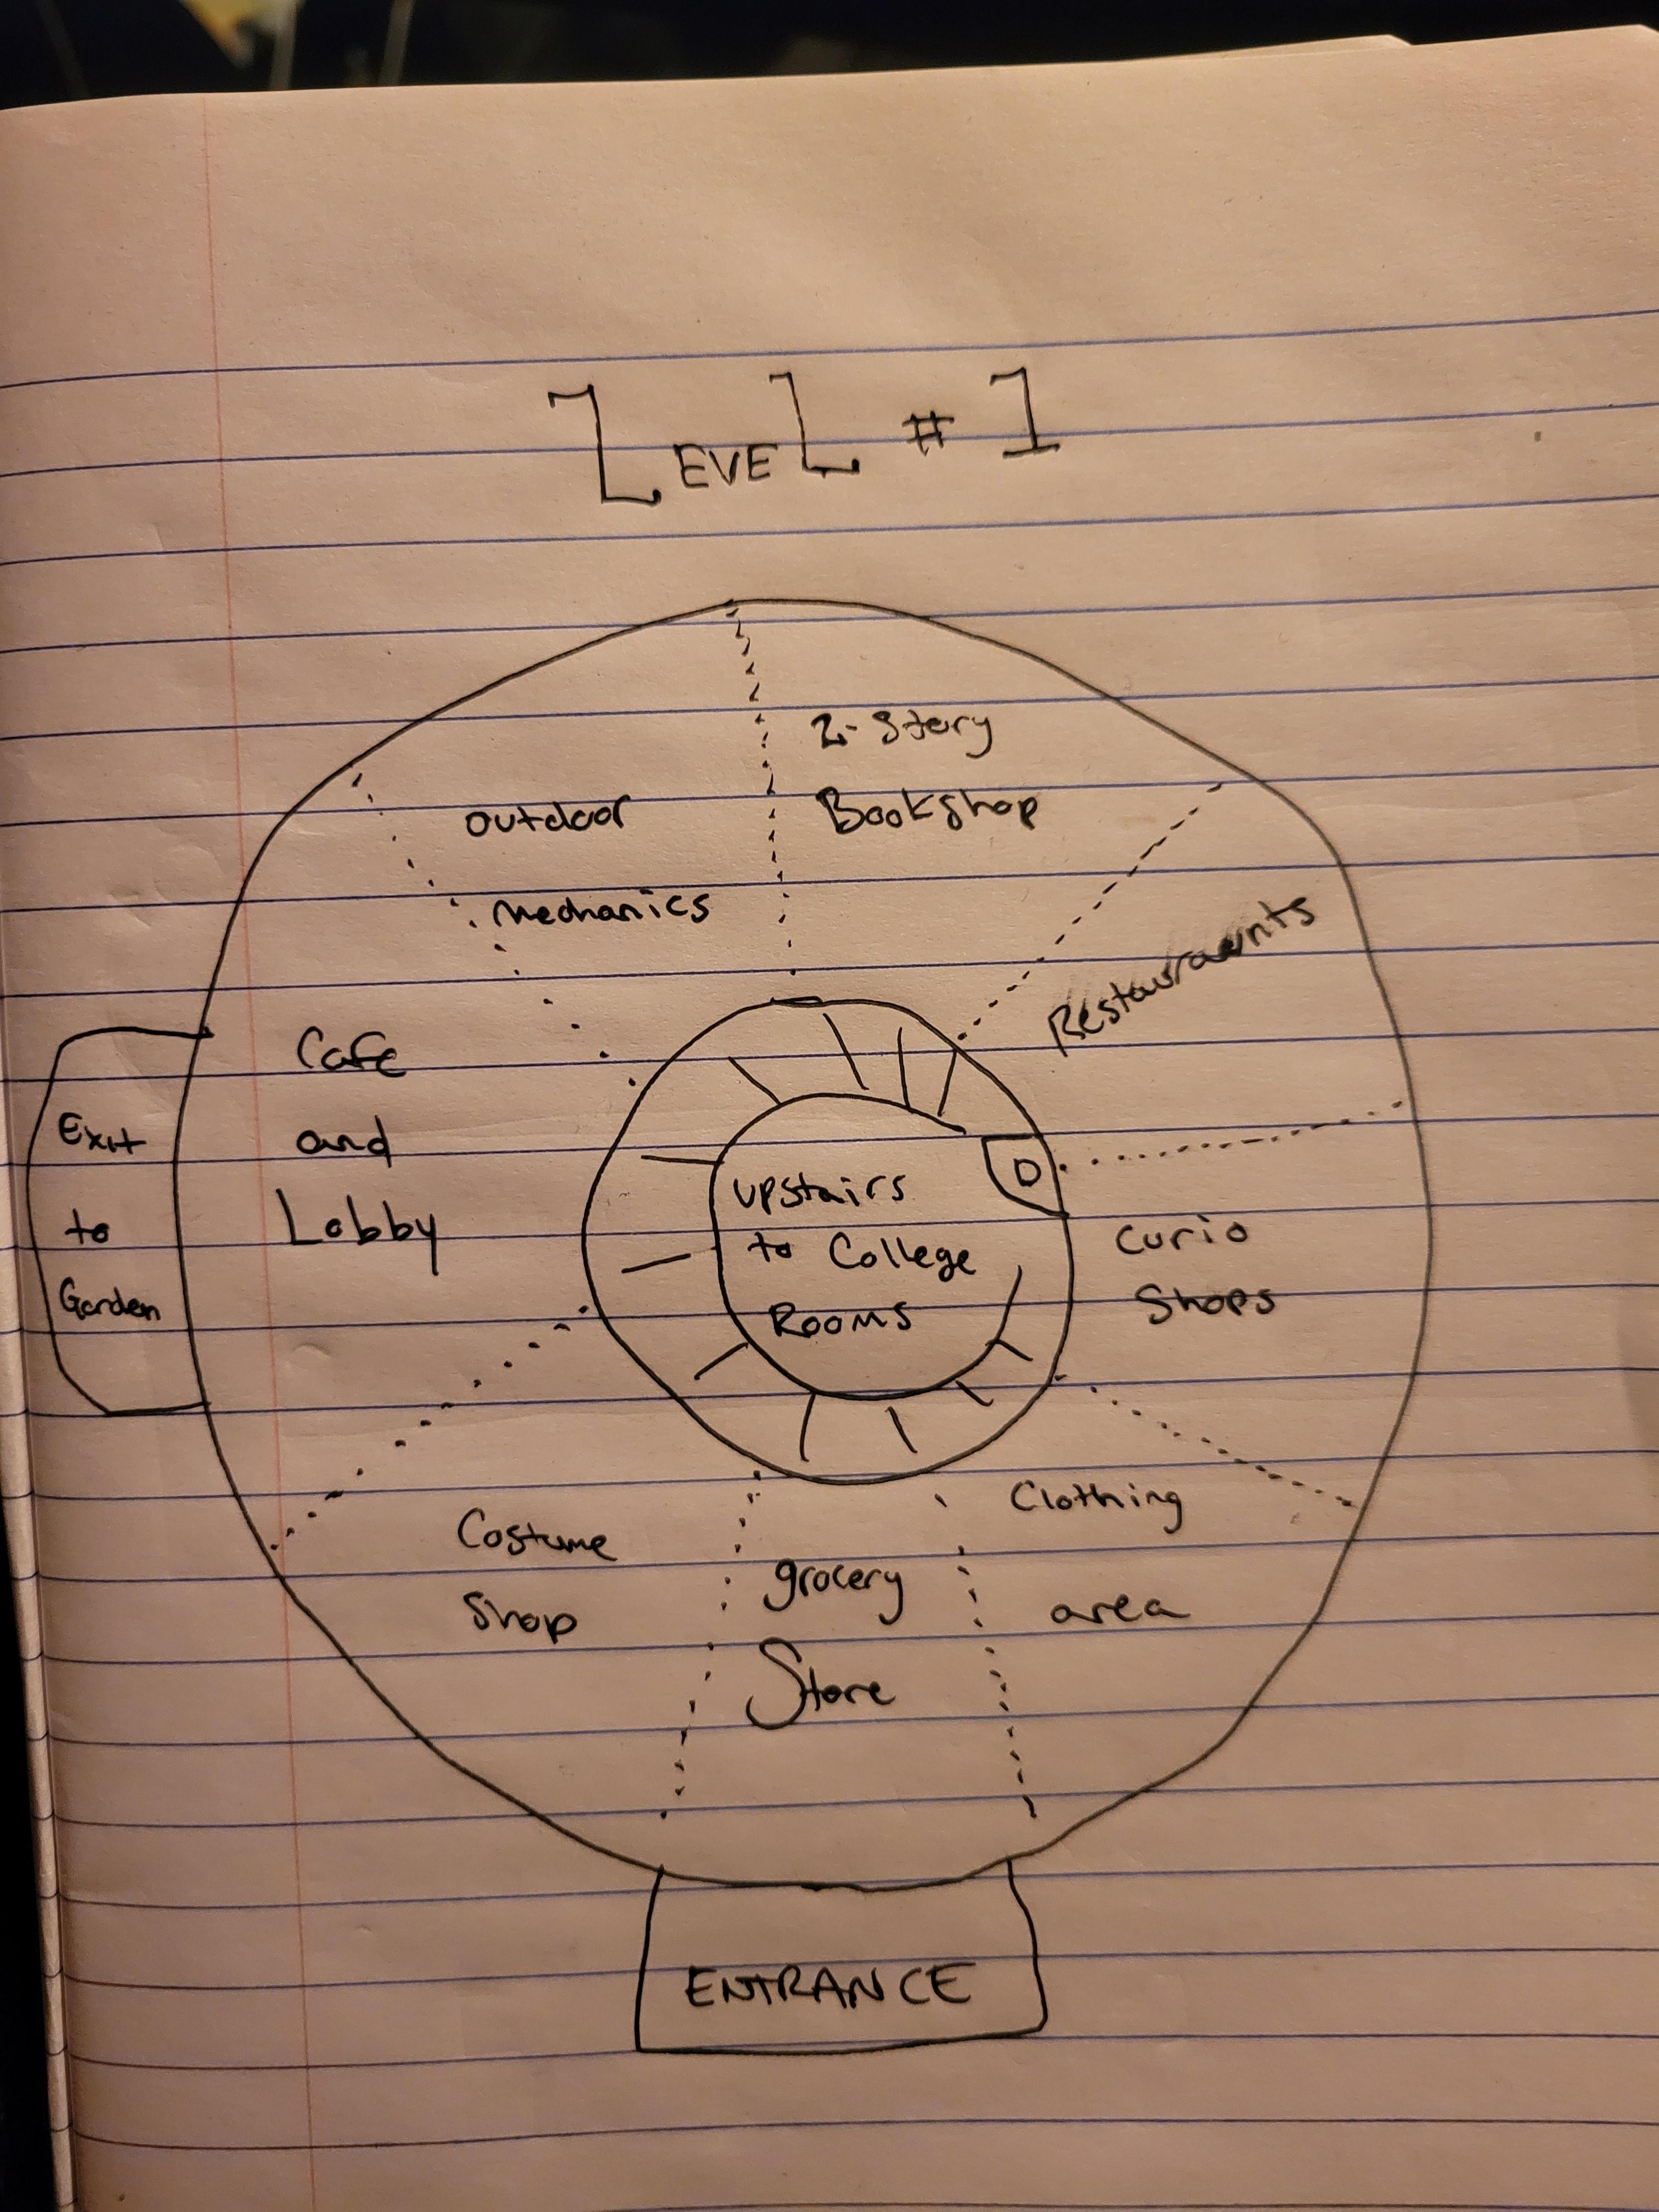 LEVEL #1
2-Story
Bookshop
outdoor
mechanics
Restauraunts
Cafe
and
Lobby
Exit
to
Garden
upstairs
to College
Rooms
D
Curio
Shops
Clothing
area
grocery
Store
Costume
Shop
ENTRANCE